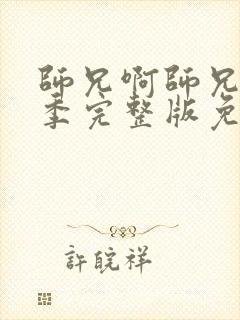 師兄啊師兄
季完整版免
許皖祥